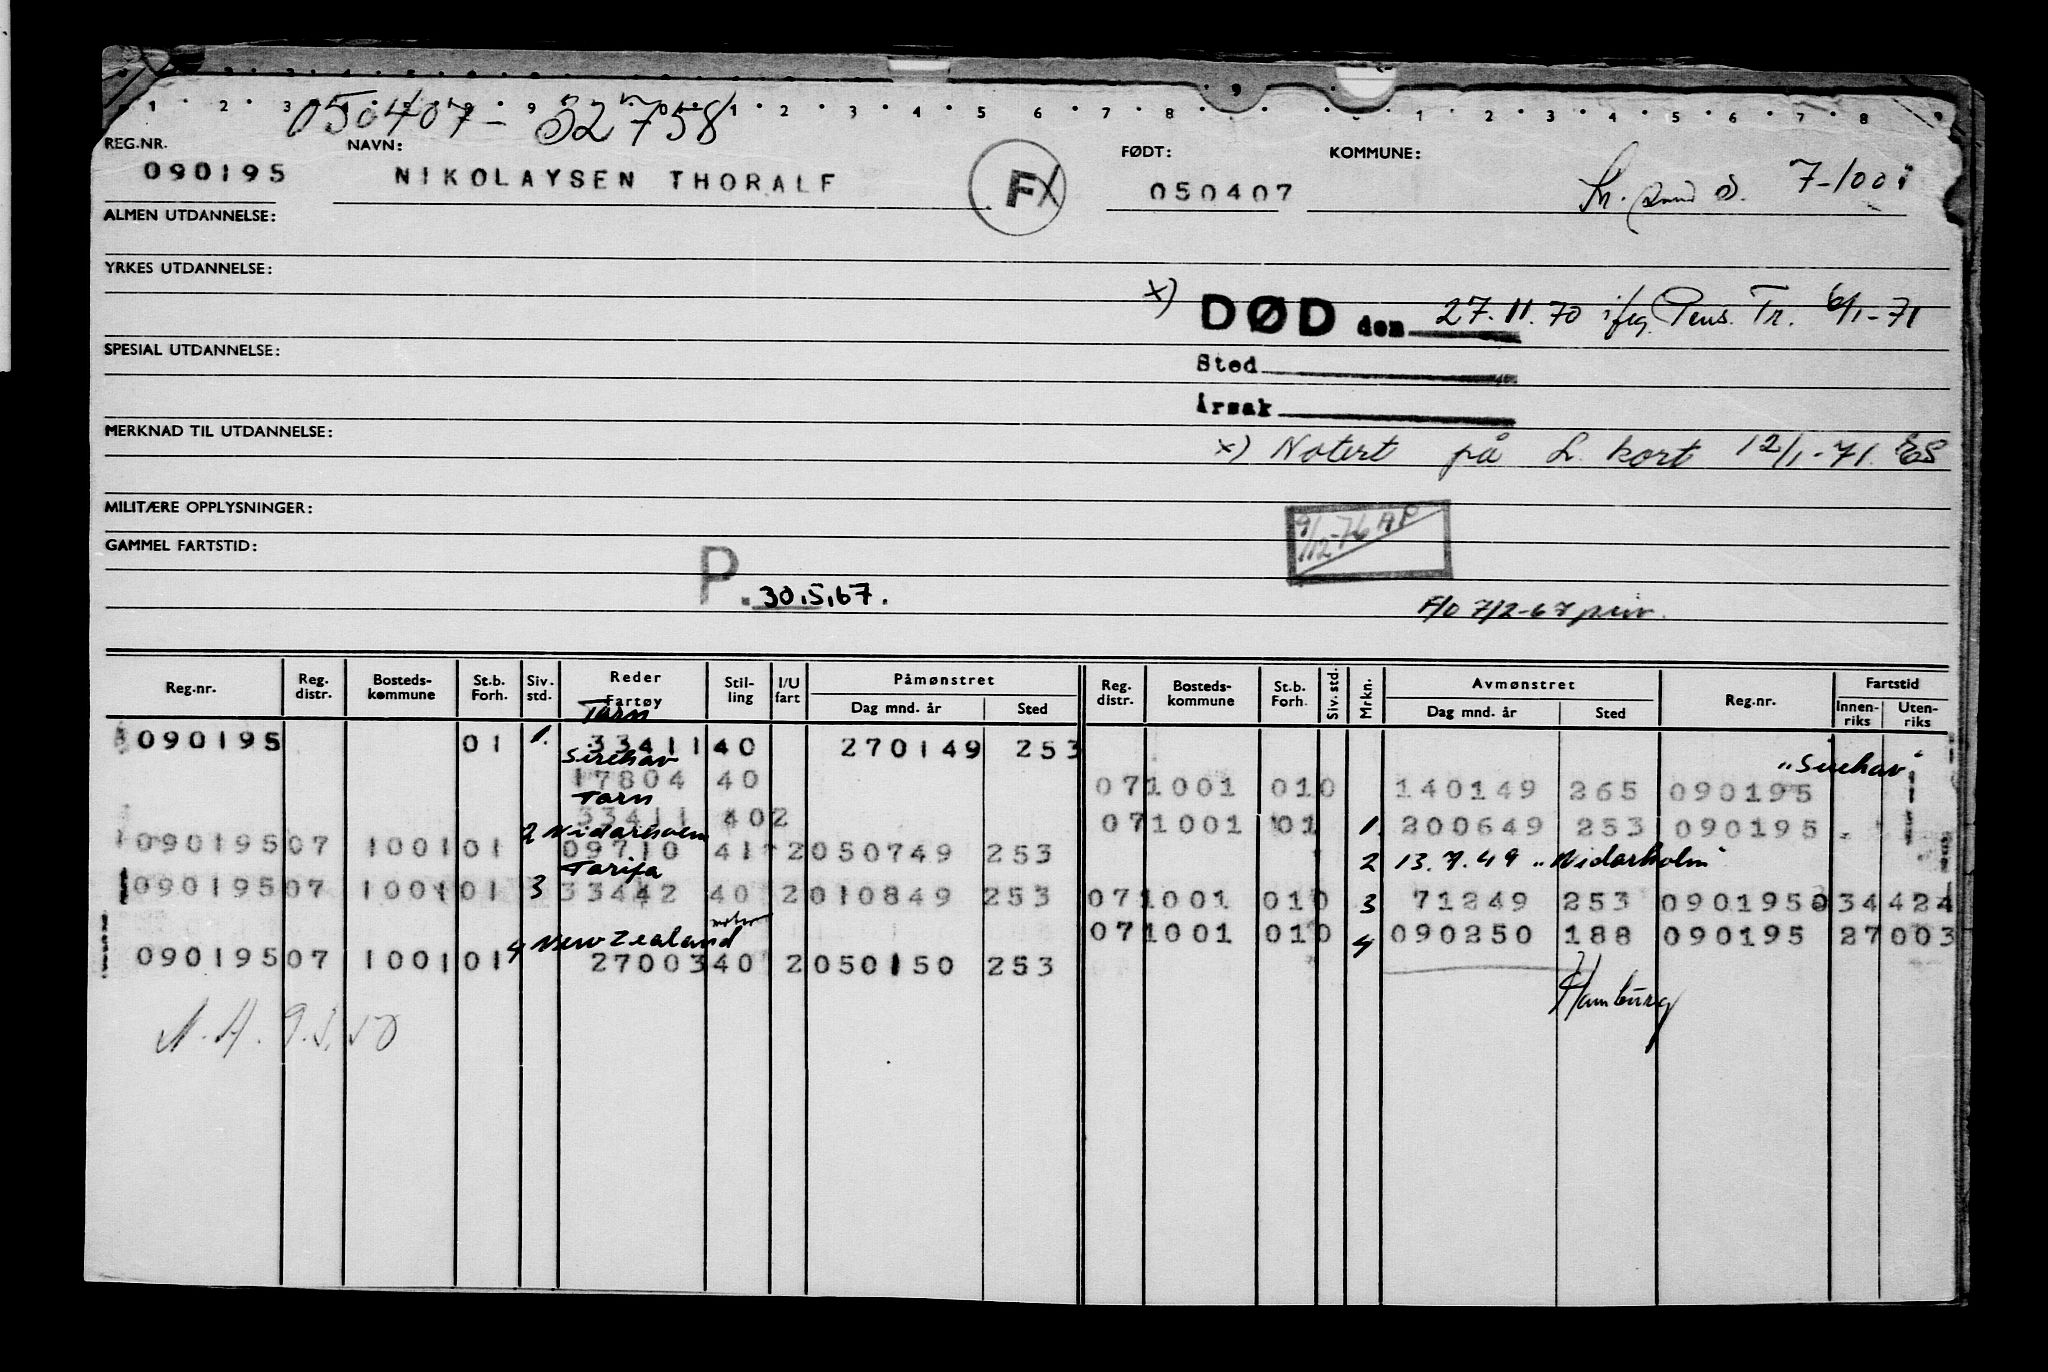 050407-32758
REG.NR. NAVN: FØDT: KOMMUNE:
090195 NIKOLAYSEN THORALF F 050407 Kr. sand S. 7-1001
ALMEN UTDANNELSE:
YRKES UTDANNELSE:
x) DØD den 27.11.70 iføg. Pens. Tr. 6/1-71
SPESIAL UTDANNELSE: Sted
Årsak
MERKNAD TIL UTDANNELSE:
x) Notert på L. kort 12/1-71. ES
MILITÆRE OPPLYSNINGER:
9/12-76 AP
GAMMEL FARTSTID:
P. 30.5.67.
F/o 7/2-67 
Reg.nr. Reg. distr. Bosteds-kommune St.b. Forh. Siv. std. Reder Fartøy Stil-ling I/U fart Påmønstret Dag mnd. år Sted Reg. distr. Bosteds-kommune St.b. Forh. Siv. std. Mrkn. Avmønstret Dag mnd. år Sted Reg.nr. Fartstid Innen-riks Uten-riks
Tarn
090195 01 1. 33411 40 270149 253
Sirehav "Sirehav"
17804 40 071001 010 140149 265 090195
Tarn
33411 402 071001 01 1. 200649 253 090195
2 Nidarholm
090195 07 1001 01 09710 41 2 050749 253 2 13.7.49 "Nidarholm"
Tarifa
090195 07 1001 01 3 33442 40 2 010849 253 071001 010 3 71249 253 090195 0 34 424
4 New Zealand 071001 010 4 090250 188 090195 27 003
090195 07 1001 01 27003 40 2 050150 253
Hamburg
N.A. 9.3.50